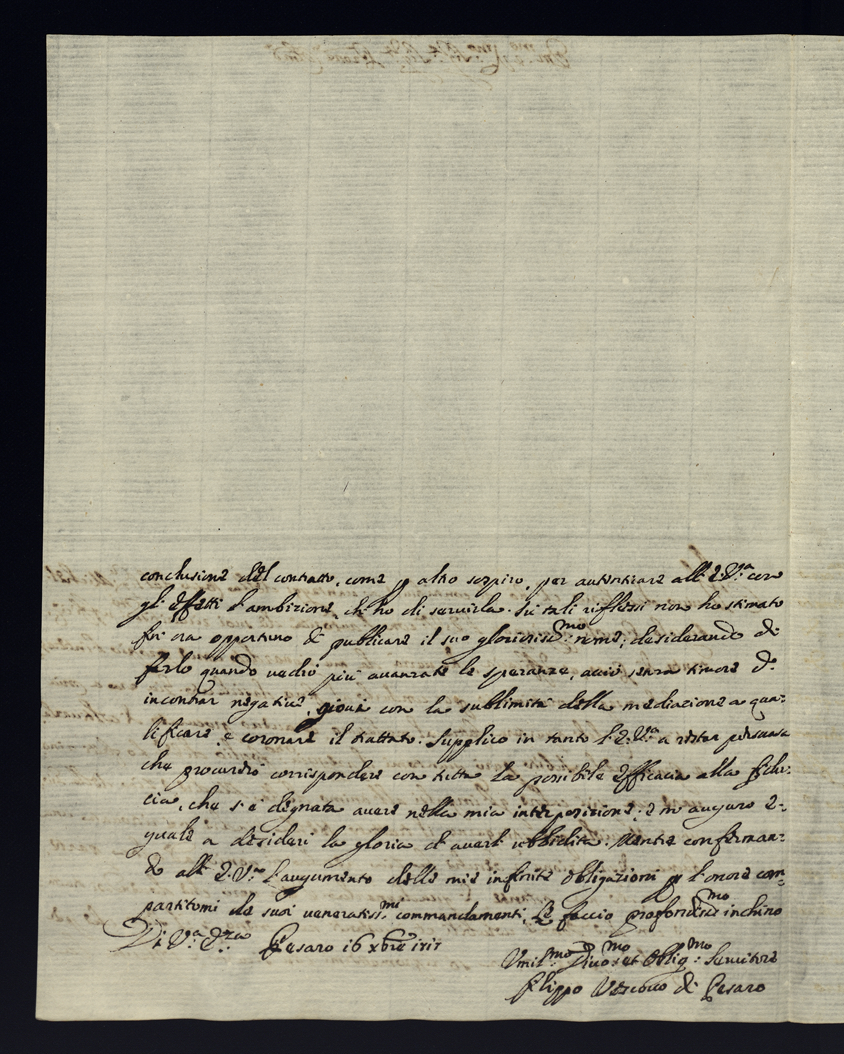 conclusione del contratto, come p altro sospiro, per autenticare all' E. V.ª con
gl' effetti l' ambizione, ch' ho di servirla. Su tali riflessi non ho stimato
fin ora opportuno di publicare il suo gloriosiss.mo nome, desiderando di
farlo quando vedrò più avanzate le speranze, acciò senza timore d'
incontrar negative, giovi con la sublimità della mediazione a qua-
lificare, e coronare il trattato. Supplico in tanto l' E. V.ª a restar persuasa
che procurerò corrispondere con tutta la possibile efficacia alla fidu-
cia, che s' è degnata avere nella mia interposizione; e m' auguro e-
guale a desideri la gloria d' averla ubbidita. Mentre conferman-
do all' E. V.ra l' augumento delle mie infinite obligazioni p l' onore com-
partitomi de suoi veneratiss.mi commandamenti, Le faccio profondiss.mo inchino
Di V.ª E.nza Pesaro 16 xbre 1717
Umil.mo Divo.mo et Oblig.mo Servitore
Filippo Vescovo di Pesaro